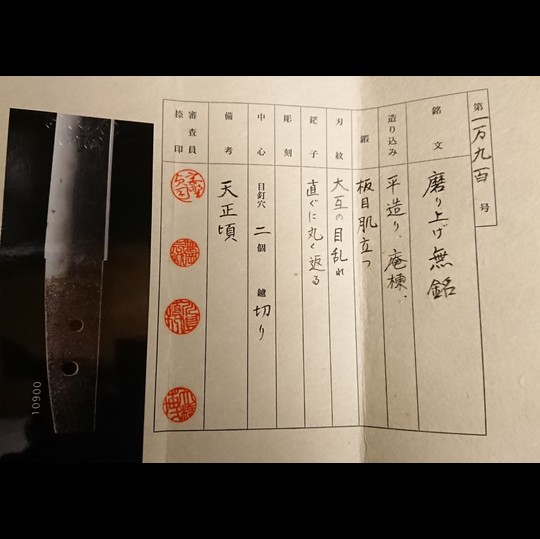 第一万九百号
銘文 磨り上げ無銘
造り込み 平造り、庵棟、
鍛 板目肌立つ
刃紋 大互の目乱れ
鋩子 直ぐに丸く返る
彫刻
中心 目釘穴 二個 鑢 切り
備考 天正頃
審査員捺印
10900